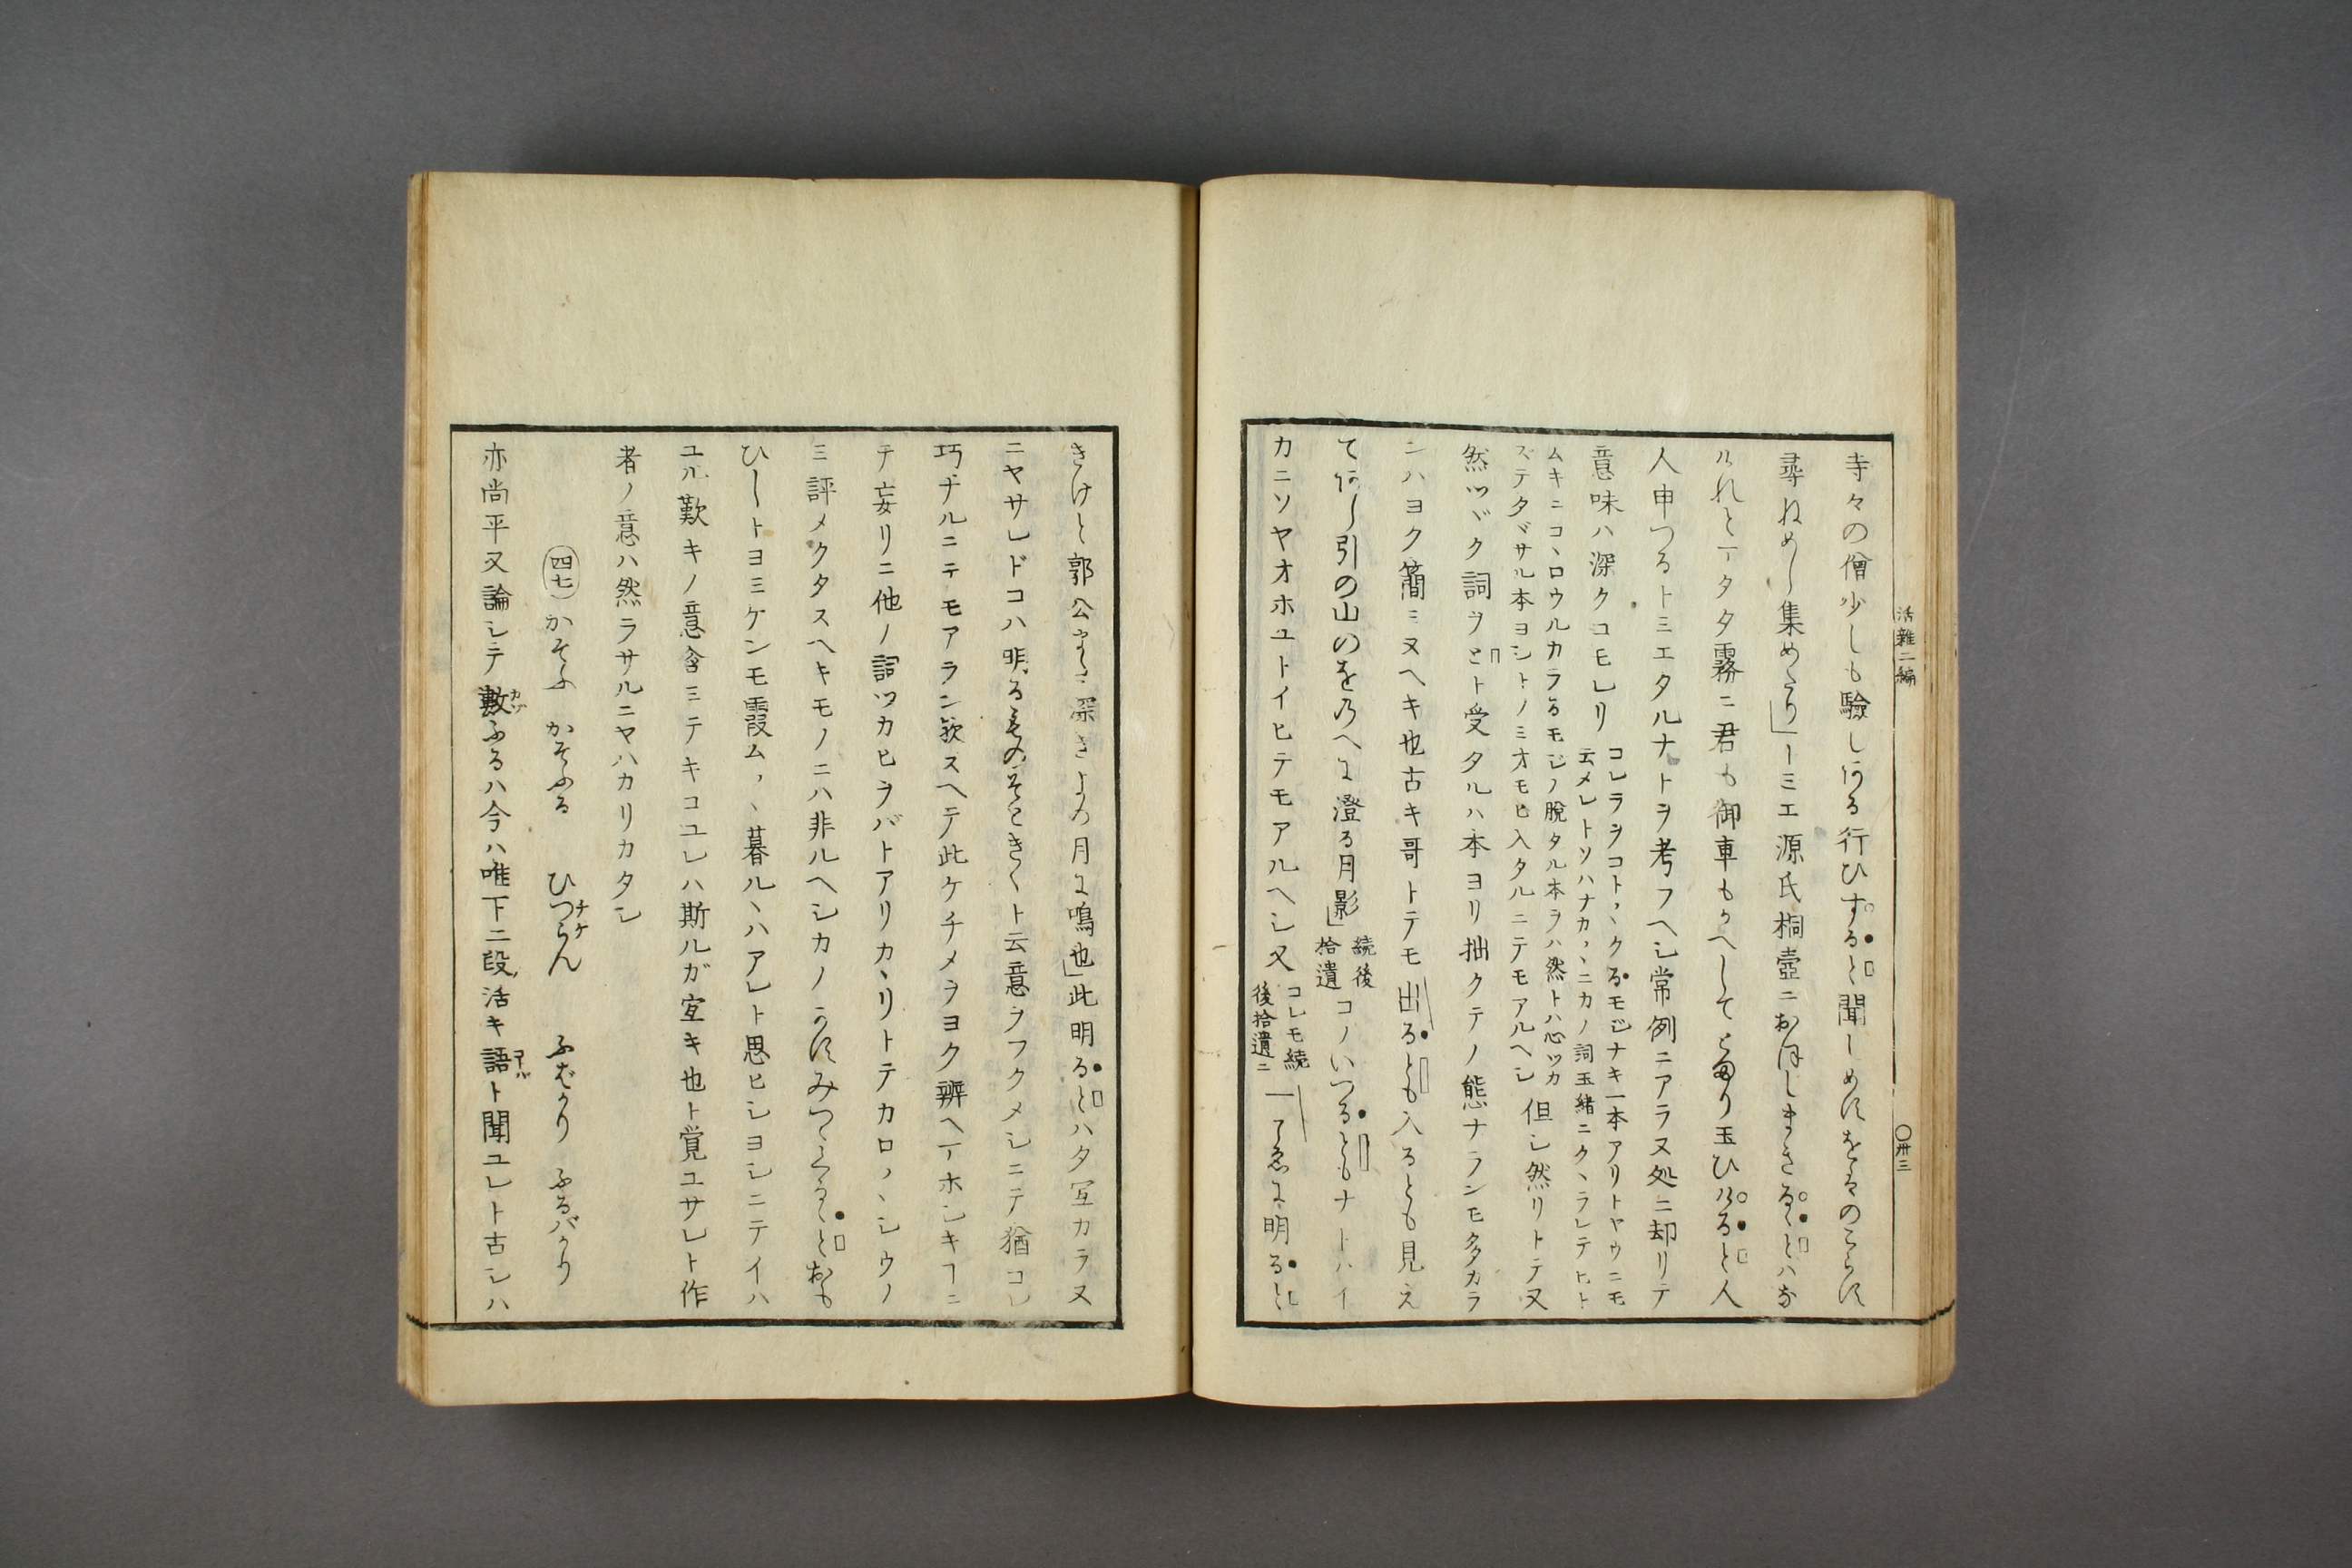 活雑二編
〇卅三
寺々の僧少しも験しある行ひするを聞しめすをはのこらす
尋ねめし集めたり」トミエ源氏桐壺ニおほしまさるゝとハな
けれとーータタ霧ニ君も御車もかへしてとまり玉ひけると人
人申つるトミエタルナトヲ考フヘシ常例ニアラヌ処ニ却リテ
意味ハ深クコモレリ
コレラヲコトヽクるモジナキ一本アリトヤウニモ
云メレトソハナカヽニカノ詞玉緒ニクヽラレテヒト
ムキニコヽロウルカラるモジノ脱タル本ヲハ然トハ心ツカ
ズテタヾサル本ヨシトノミオモヒ入タルニテモアルヘシ
但シ然リトテ又
然ツヾク詞ヲとト受タルハ本ヨリ拙クテノ態ナランモ多カラ
ンハヨク簡ミヌヘキ也古キ哥トテモ出るとも入るとも見え
てあし引の山のをのへに澄る月影」
続後
拾遺
コノいつるともナトハイ
カニソヤオホユトイヒテモアルヘシ又
コレモ続
後拾遺ニ
こゑに明ると
きけと郭公またき深きよの月に鳴也」此明るとハタ宜カラヌ
ニヤサレドコハ明るものそときくト云意ヲフクメシニテ猶コレ
巧ヂルニテモアラン歟スヘテ此ケチメヲヨク辨ヘーホシキコニ
テ妄リニ他ノ詞ツカヒヲバトアリカヽリトテカロヽシウノ
三評メクタスヘキモノニハ非ルヘシカノうすみつくるゝとおも
ひしトヨミケンモ霞ムヽ暮ルヽハアレト思ヒシヨシニテイハ
ユル歎キノ意含ミテキコユレハ斯ルガ宜キ也ト覚ユサレト作
者ノ意ハ然ラサルニヤハカリカタシ
四七 かそふ かそふる ひつらんナケ ふばかり ふるバかり
亦尚平又論シテ数カゾふるハ今ハ唯下ニ段ノ活キ語コトバト聞ユレト古シハ